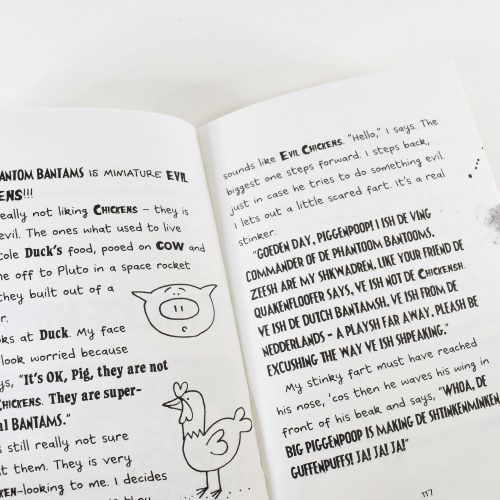 PHANTOM BANTAMS IS MINIATURE EVIL
ENS!!!
really not liking CHICKENS – they is
evil. The ones what used to live
tole Duck's food, pooed on COW and
me off to Pluto in a space rocket
they built out of a
r.
oks at Duck. My face
look worried because
ys, "It's OK, Pig, they are not
CHICKENS. They are super-
al BANTAMS."
s still really not sure
st them. They is very
KEN-looking to me. I decides
sounds like EVIL CHICKENS. "Hello," I says. The
biggest one steps forward. I steps back,
just in case he tries to do something evil.
I lets out a little scared fart. It's a real
stinker.
"GOEDEN DAY, PIGGENPOOP! I ISH DE VING
COMMANDER OF DE PHANTOOM BANTOOMS.
ZEESH ARE MY SHKWADREN. LIKE YOUR FRIEND DE
QUAKENFLOOFER SAYS, VE ISH NOT DE CHICKENSH.
VE ISH DE DUTCH BANTAMSH. VE ISH FROM DE
NEDDERLANDS – A PLAYSH FAR AWAY. PLEASH BE
EXCUSHING THE WAY VE ISH SHPEAKING."
My stinky fart must have reached
his nose, 'cos then he waves his wing in
front of his beak and says, "WHOA, DE
BIG PIGGENPOOP IS MAKING DE SHTINKENMINKEN
GUFFENPUFFS! JA! JA! JA!"
117